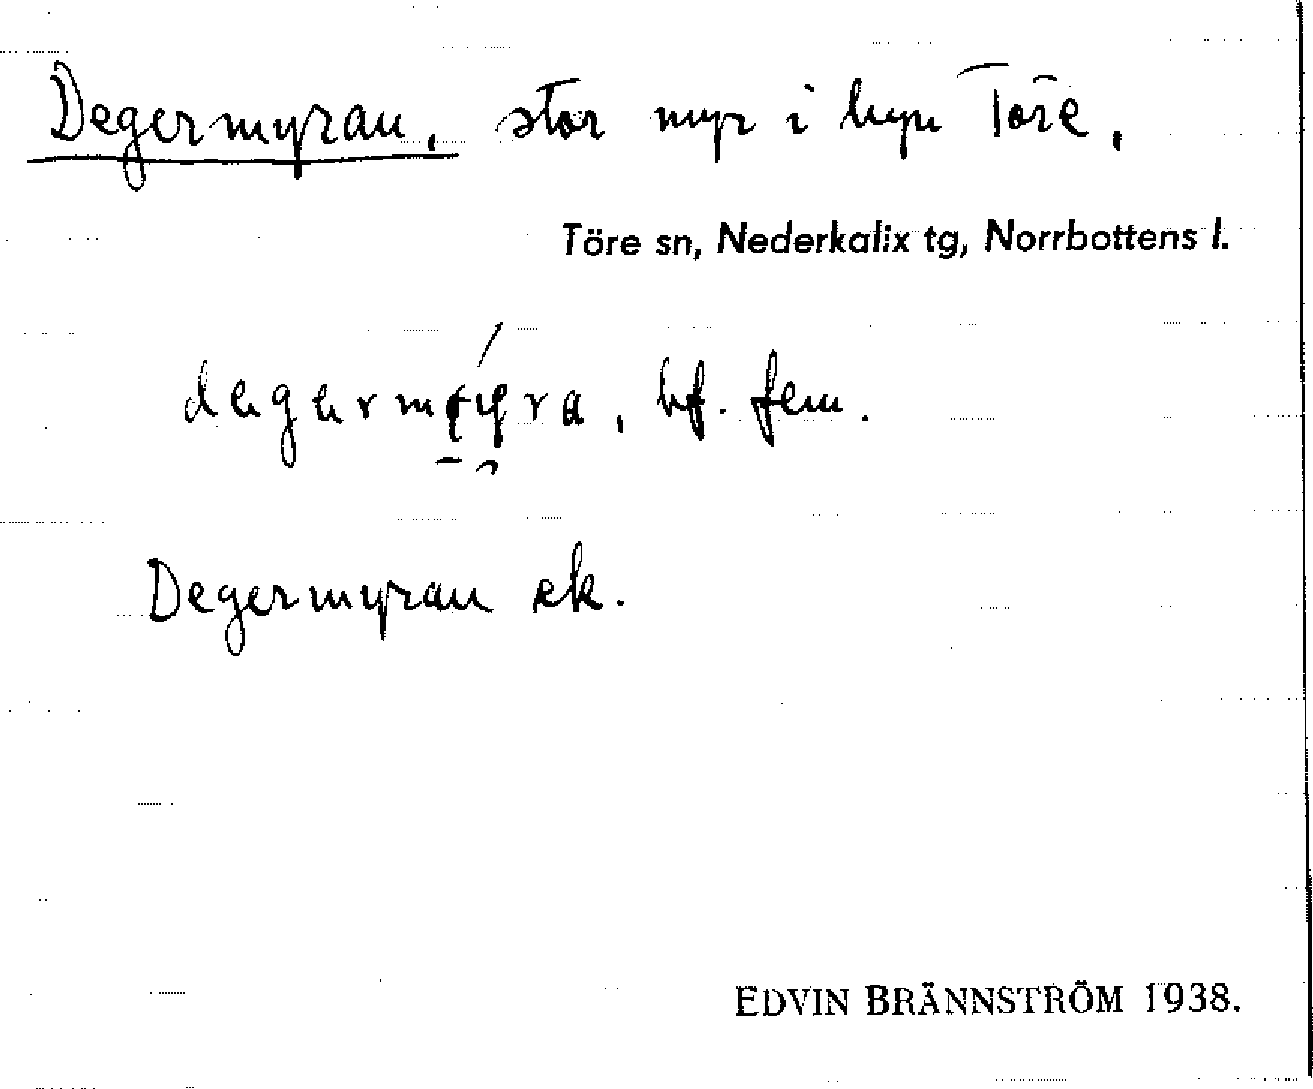 Degermyran, stor myr i byn Töre,
Töre sn, Nederkalix tg, Norrbottens l.
bf. fem.
Degermyran ek.
EDVIN BRÄNNSTRÖM 1938.